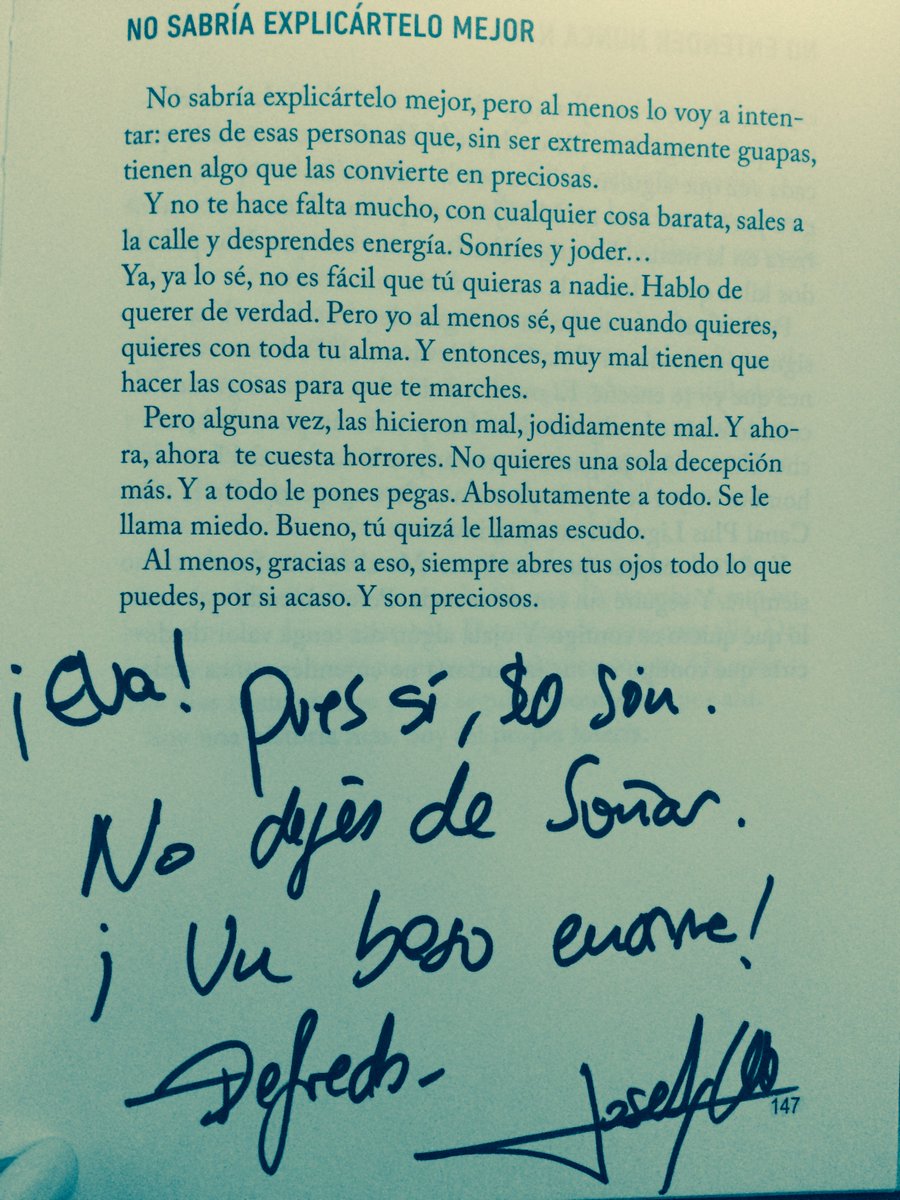 NO SABRÍA EXPLICÁRTELO MEJOR
No sabría explicártelo mejor, pero al menos lo voy a inten-
tar: eres de esas personas que, sin ser extremadamente guapas,
tienen algo que las convierte en preciosas.
Y no te hace falta mucho, con cualquier cosa barata, sales a
la calle y desprendes energía. Sonríes y joder...
Ya, ya lo sé, no es fácil que tú quieras a nadie. Hablo de
querer de verdad. Pero yo al menos sé, que cuando quieres,
quieres con toda tu alma. Y entonces, muy mal tienen que
hacer las cosas para que te marches.
Pero alguna vez, las hicieron mal, jodidamente mal. Y aho-
ra, ahora te cuesta horrores. No quieres una sola decepción
más. Y a todo le pones pegas. Absolutamente a todo. Se le
llama miedo. Bueno, tú quizá le llamas escudo.
Al menos, gracias a eso, siempre abres tus ojos todo lo que
puedes, por si acaso. Y son preciosos.
¡Eva! pues sí, lo son.
No dejes de soñar.
¡Un beso enorme!
Defreds-
147